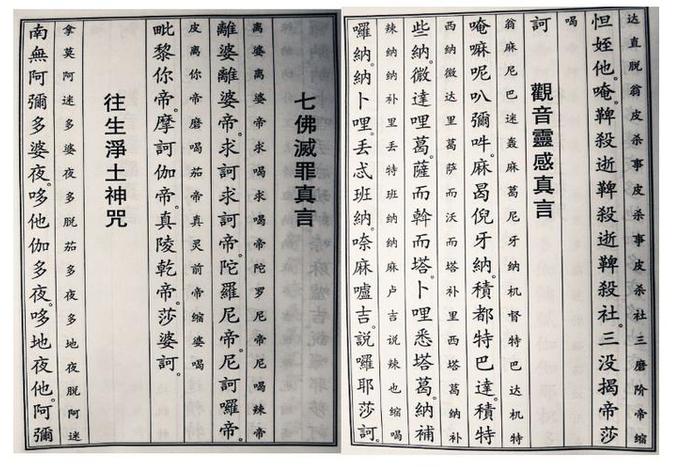 达直脱翁皮杀事皮杀事皮杀社三磨阶帝缩
怛姪他。唵。鞞殺逝鞞殺逝鞞殺社。三没揭帝莎
喝
訶
觀音靈感真言
翁麻尼巴迷轰麻葛尼牙纳机督特巴达机特
唵嘛呢叭彌吽。麻曷倪牙納。積都特巴達。積特
西纳微达里葛萨而沃而塔补里西塔葛纳补
些納。微達哩葛。薩而斡而塔。卜哩悉塔葛。納補
辣纳纳补里丢特班纳纳麻卢吉说辣也缩喝
囉納。納卜哩。丢忒班納。㖠麻嚧吉。說囉耶莎訶。
七佛滅罪真言
离婆离婆帝求喝求喝帝陀罗尼帝尼喝辣帝
離婆離婆帝。求訶求訶帝。陀羅尼帝。尼訶囉帝。
皮离你帝磨喝茄帝真灵前帝缩婆喝
毗黎你帝。摩訶伽帝。真陵乾帝。莎婆訶。
往生淨土神咒
拿莫阿迷多婆夜多脱茄多夜多地夜脱阿迷
南無阿彌多婆夜。哆他伽多夜。哆地夜他。阿彌